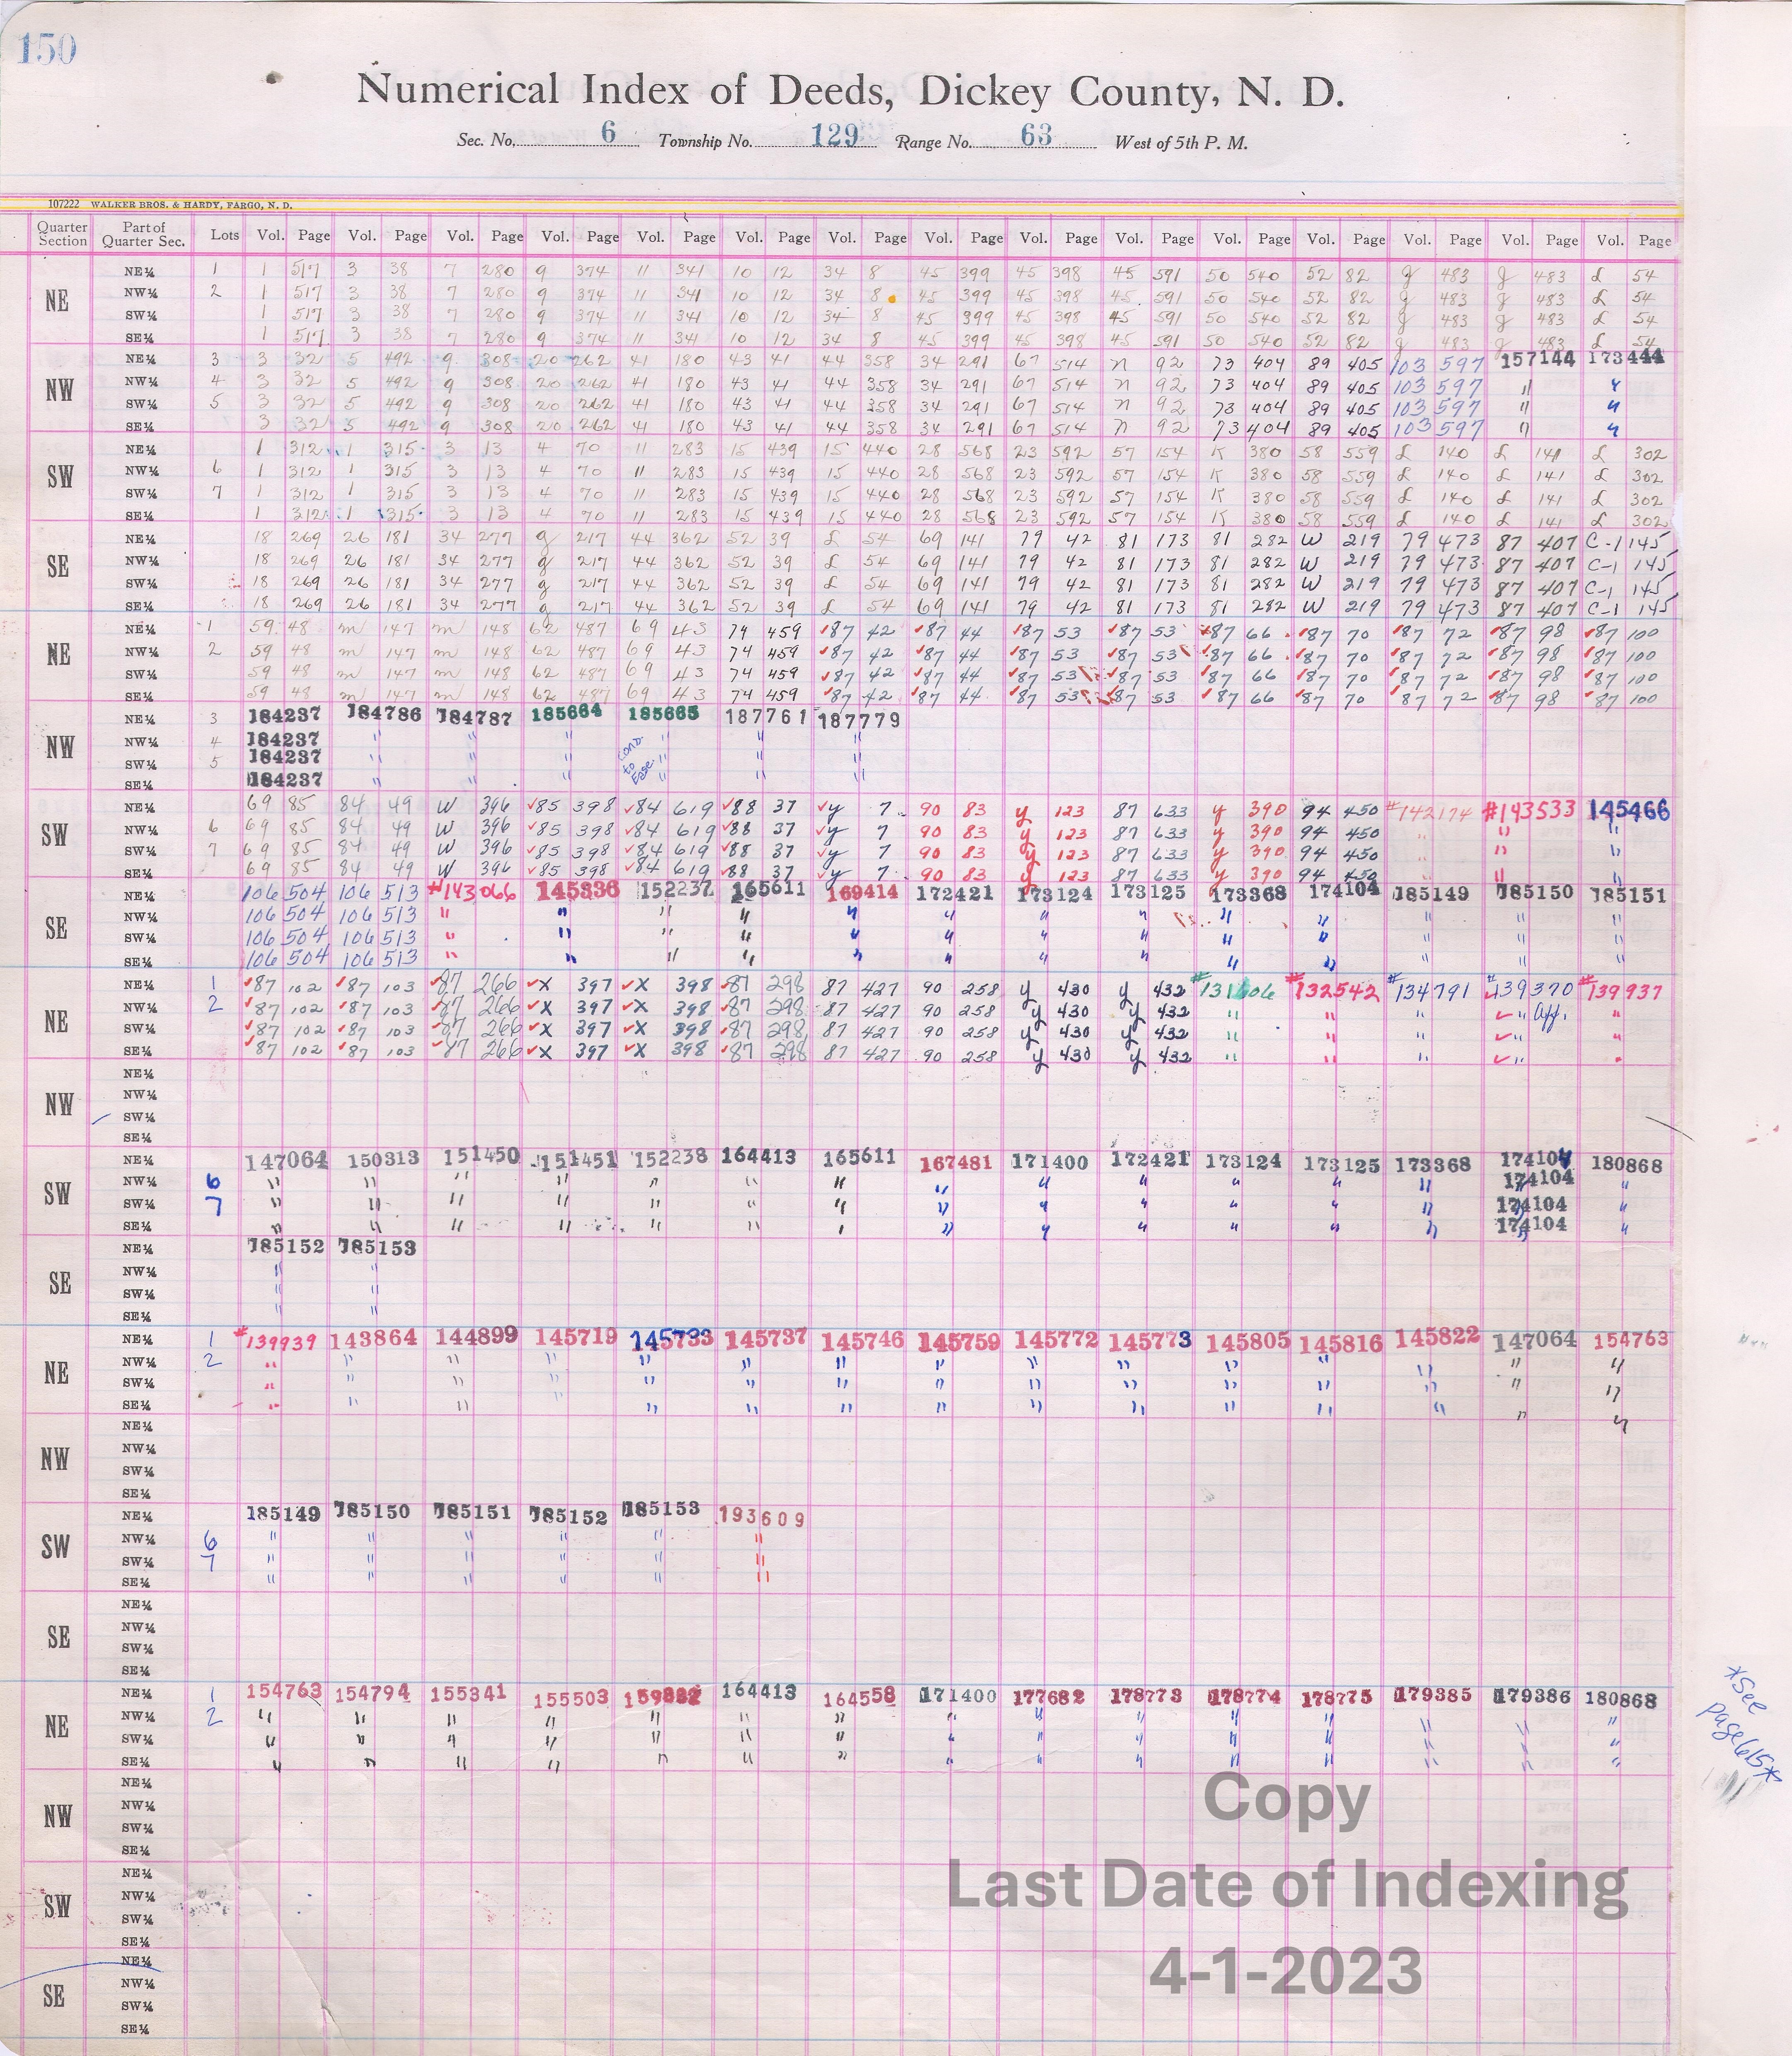 150
Numerical Index of Deeds, Dickey County, N. D.
Sec. No. 6 Township No. 129 Range No. 63 West of 5th P. M.
107222 WALKER BROS. & HARDY, FARGO, N. D.
Quarter Section Part of Quarter Sec. Lots Vol. Page Vol. Page Vol. Page Vol. Page Vol. Page Vol. Page Vol. Page Vol. Page Vol. Page Vol. Page Vol. Page Vol. Page Vol. Page Vol. Page Vol. Page
NE
NE¼ 1 1 517 3 38 7 280 9 374 11 341 10 12 34 8 45 399 45 398 45 591 50 540 52 82 g 483 g 483 L 54
NW¼ 2 1 517 3 38 7 280 9 374 11 341 10 12 34 8 45 399 45 398 45 591 50 540 52 82 g 483 g 483 L 54
SW¼ 1 517 3 38 7 280 9 374 11 341 10 12 34 8 45 399 45 398 45 591 50 540 52 82 g 483 g 483 L 54
SE¼ 1 517 3 38 7 280 9 374 11 341 10 12 34 8 45 399 45 398 45 591 50 540 52 82 g 483 g 483 L 54
NW
NE¼ 3 3 32 5 492 9 308 20 262 41 180 43 41 44 358 34 291 67 514 n 92 73 404 89 405 103 597 157144 173444
NW¼ 4 3 32 5 492 9 308 20 262 41 180 43 41 44 358 34 291 67 514 n 92 73 404 89 405 103 597 " "
SW¼ 5 3 32 5 492 9 308 20 262 41 180 43 41 44 358 34 291 67 514 n 92 73 404 89 405 103 597 " "
SE¼ 3 32 5 492 9 308 20 262 41 180 43 41 44 358 34 291 67 514 n 92 73 404 89 405 103 597 " "
SW
NE¼ 1 312 1 315 3 13 4 70 11 283 15 439 15 440 28 568 23 592 57 154 K 380 58 559 L 140 L 141 L 302
NW¼ 6 1 312 1 315 3 13 4 70 11 283 15 439 15 440 28 568 23 592 57 154 K 380 58 559 L 140 L 141 L 302
SW¼ 7 1 312 1 315 3 13 4 70 11 283 15 439 15 440 28 568 23 592 57 154 K 380 58 559 L 140 L 141 L 302
SE¼ 1 312 1 315 3 13 4 70 11 283 15 439 15 440 28 568 23 592 57 154 K 380 58 559 L 140 L 141 L 302
SE
NE¼ 18 269 26 181 34 277 g 217 44 362 52 39 L 54 69 141 79 42 81 173 81 282 W 219 79 473 87 407 C-1 145
NW¼ 18 269 26 181 34 277 g 217 44 362 52 39 L 54 69 141 79 42 81 173 81 282 W 219 79 473 87 407 C-1 145
SW¼ 18 269 26 181 34 277 g 217 44 362 52 39 L 54 69 141 79 42 81 173 81 282 W 219 79 473 87 407 C-1 145
SE¼ 18 269 26 181 34 277 g 217 44 362 52 39 L 54 69 141 79 42 81 173 81 282 W 219 79 473 87 407 C-1 145
NE
NE¼ 1 59 48 m 147 m 148 62 487 69 43 74 459 ✓87 42 ✓87 44 ✓87 53 ✓87 53 ✓87 66 ✓87 70 ✓87 72 ✓87 98 ✓87 100
NW¼ 2 59 48 m 147 m 148 62 487 69 43 74 459 ✓87 42 ✓87 44 ✓87 53 ✓87 53 ✓87 66 ✓87 70 ✓87 72 ✓87 98 ✓87 100
SW¼ 59 48 m 147 m 148 62 487 69 43 74 459 ✓87 42 ✓87 44 ✓87 53 ✓87 53 ✓87 66 ✓87 70 ✓87 72 ✓87 98 ✓87 100
SE¼ 59 48 m 147 m 148 62 487 69 43 74 459 ✓87 42 ✓87 44 ✓87 53 ✓87 53 ✓87 66 ✓87 70 ✓87 72 ✓87 98 ✓87 100
NW
NE¼ 3 184237 184786 184787 185664 185665 187761 187779
NW¼ 4 184237 " " " " " "
SW¼ 5 184237
SE¼ 184237 " " " " " "
SW
NE¼ 69 85 84 49 W 396 ✓85 398 ✓84 619 ✓88 37 ✓y 7 90 83 y 123 87 633 y 390 94 450 #142174 #143533 145466
NW¼ 6 69 85 84 49 W 396 ✓85 398 ✓84 619 ✓88 37 ✓y 7 90 83 y 123 87 633 y 390 94 450 " " "
SW¼ 7 69 85 84 49 W 396 ✓85 398 ✓84 619 ✓88 37 ✓y 7 90 83 y 123 87 633 y 390 94 450 " " "
SE¼ 69 85 84 49 W 396 ✓85 398 ✓84 619 ✓88 37 ✓y 7 90 83 y 123 87 633 y 390 94 450 " " "
SE
NE¼ 106 504 106 513 #143066 145336 152237 165611 169414 172421 173124 173125 173368 174104 185149 185150 185151
NW¼ 106 504 106 513 " " " " " " " " " " " " "
SW¼ 106 504 106 513 " " " " " " " " " " " " "
SE¼ 106 504 106 513 " " " " " " " " " " " " "
NE
NE¼ 1 ✓87 102 ✓87 103 ✓87 266 ✓X 397 ✓X 398 ✓87 298 87 427 90 258 y 430 y 432 #131606 #132542 #134791 #139370 #139937
NW¼ 2 ✓87 102 ✓87 103 ✓87 266 ✓X 397 ✓X 398 ✓87 298 87 427 90 258 y 430 y 432 " " " ✓" "
SW¼ ✓87 102 ✓87 103 ✓87 266 ✓X 397 ✓X 398 ✓87 298 87 427 90 258 y 430 y 432 " " " ✓" "
SE¼ ✓87 102 ✓87 103 ✓87 266 ✓X 397 ✓X 398 ✓87 298 87 427 90 258 y 430 y 432 " " " ✓" "
NW
NE¼
NW¼
SW¼
SE¼
SW
NE¼ 147064 150313 151450 151451 152238 164413 165611 167481 171400 172421 173124 173125 173368 174104 180868
NW¼ 6 " " " " " " " " " " " " " 174104 "
SW¼ 7 " " " " " " " " " " " " " 174104 "
SE¼ " " " " " " " " " " " " " 174104 "
SE
NE¼ 185152 185153
NW¼ " "
SW¼ " "
SE¼ " "
NE
NE¼ 1 #139939 143864 144899 145719 145733 145737 145746 145759 145772 145773 145805 145816 145822 147064 154763
NW¼ 2 " " " " " " " " " " " " " " "
SW¼ " " " " " " " " " " " " " " "
SE¼ " " " " " " " " " " " " " " "
NW
NE¼
NW¼
SW¼
SE¼
SW
NE¼ 185149 185150 185151 185152 185153 193609
NW¼ 6 " " " " " "
SW¼ 7 " " " " " "
SE¼ " " " " " "
SE
NE¼
NW¼
SW¼
SE¼
NE
NE¼ 1 154763 154794 155341 155503 164413 164558 171400 177682 178773 178774 178775 179385 179386 180868
NW¼ 2 " " " " " " " " " " " " " " "
SW¼ " " " " " " " " " " " " " " "
SE¼ " " " " " " " " " " " " " " "
*See page 615*
NW
NE¼
NW¼
SW¼
SE¼
SW
NE¼
NW¼
SW¼
SE¼
SE
NE¼
NW¼
SW¼
SE¼
Copy
Last Date of Indexing
4-1-2023